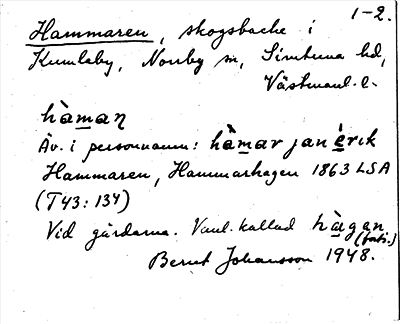 1-2.
Hammaren, skogsbacke i
Kumlaby, Norrby sn, Simtuna hd,
Västmanl. l.
hàman
Äv. i personnamn: hàmar jan érik
Hammaren, Hammarhagen 1863 LSA
(T43: 134)
Vid gårdarna. Vanl. kallad hàgan
(best.)
Bernt Johansson 1948.